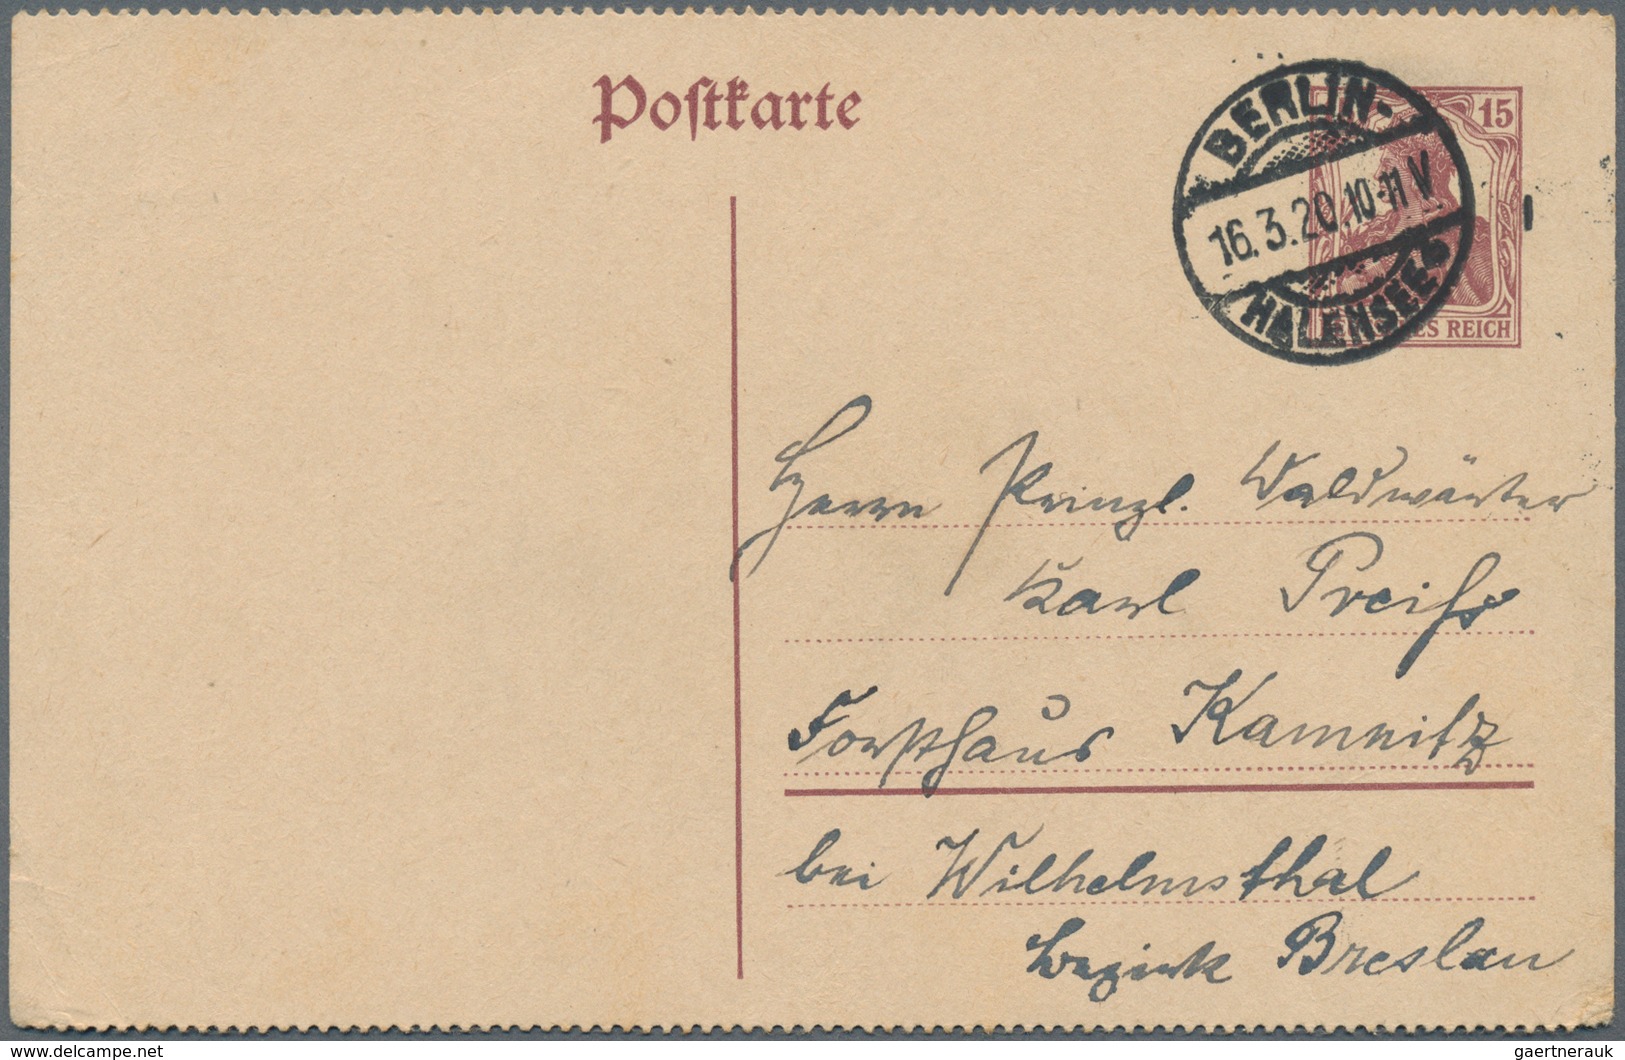 Postkarte
BERLIN-
16.3.20.10-11 V
HALENSEE
15
REICH
Herrn Prinzl. Waldwärter
Karl Preiß
Forsthaus Kamnitz
bei Wilhelmsthal
bezirk Breslau
gaertnerauk
delcampe.net